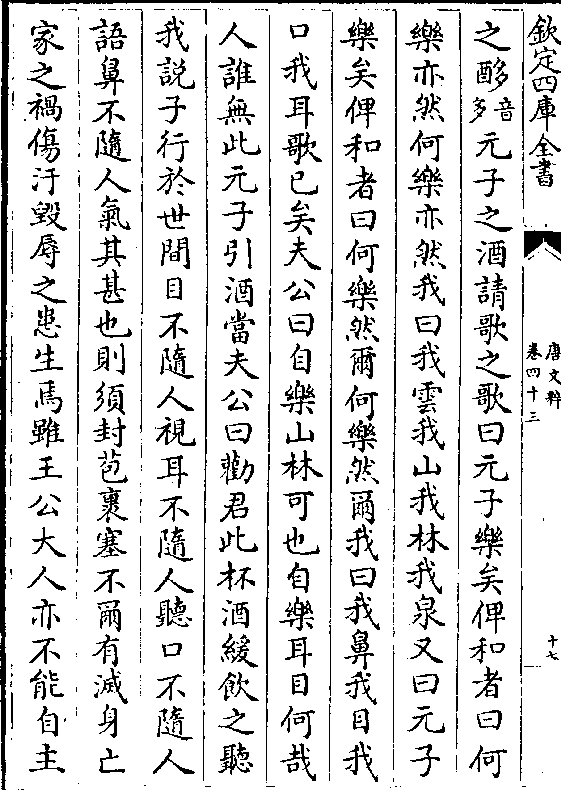 欽定四庫全書
唐文粹
卷四十三
十七
之酴音多元子之酒請歌之歌曰元子樂矣俾和者曰何
樂亦然何樂亦然我曰我雲我山我林我泉又曰元子
樂矣俾和者曰何樂然爾何樂然爾我曰我鼻我目我
口我耳歌已矣夫公曰自樂山林可也自樂耳目何哉
人誰無此元子引酒當夫公曰勸君此杯酒緩飲之聽
我説子行於世間目不隨人視耳不隨人聽口不隨人
語鼻不隨人氣其甚也則須封苞裹塞不爾有滅身亡
家之禍傷汙毀辱之患生焉雖王公大人亦不能自主